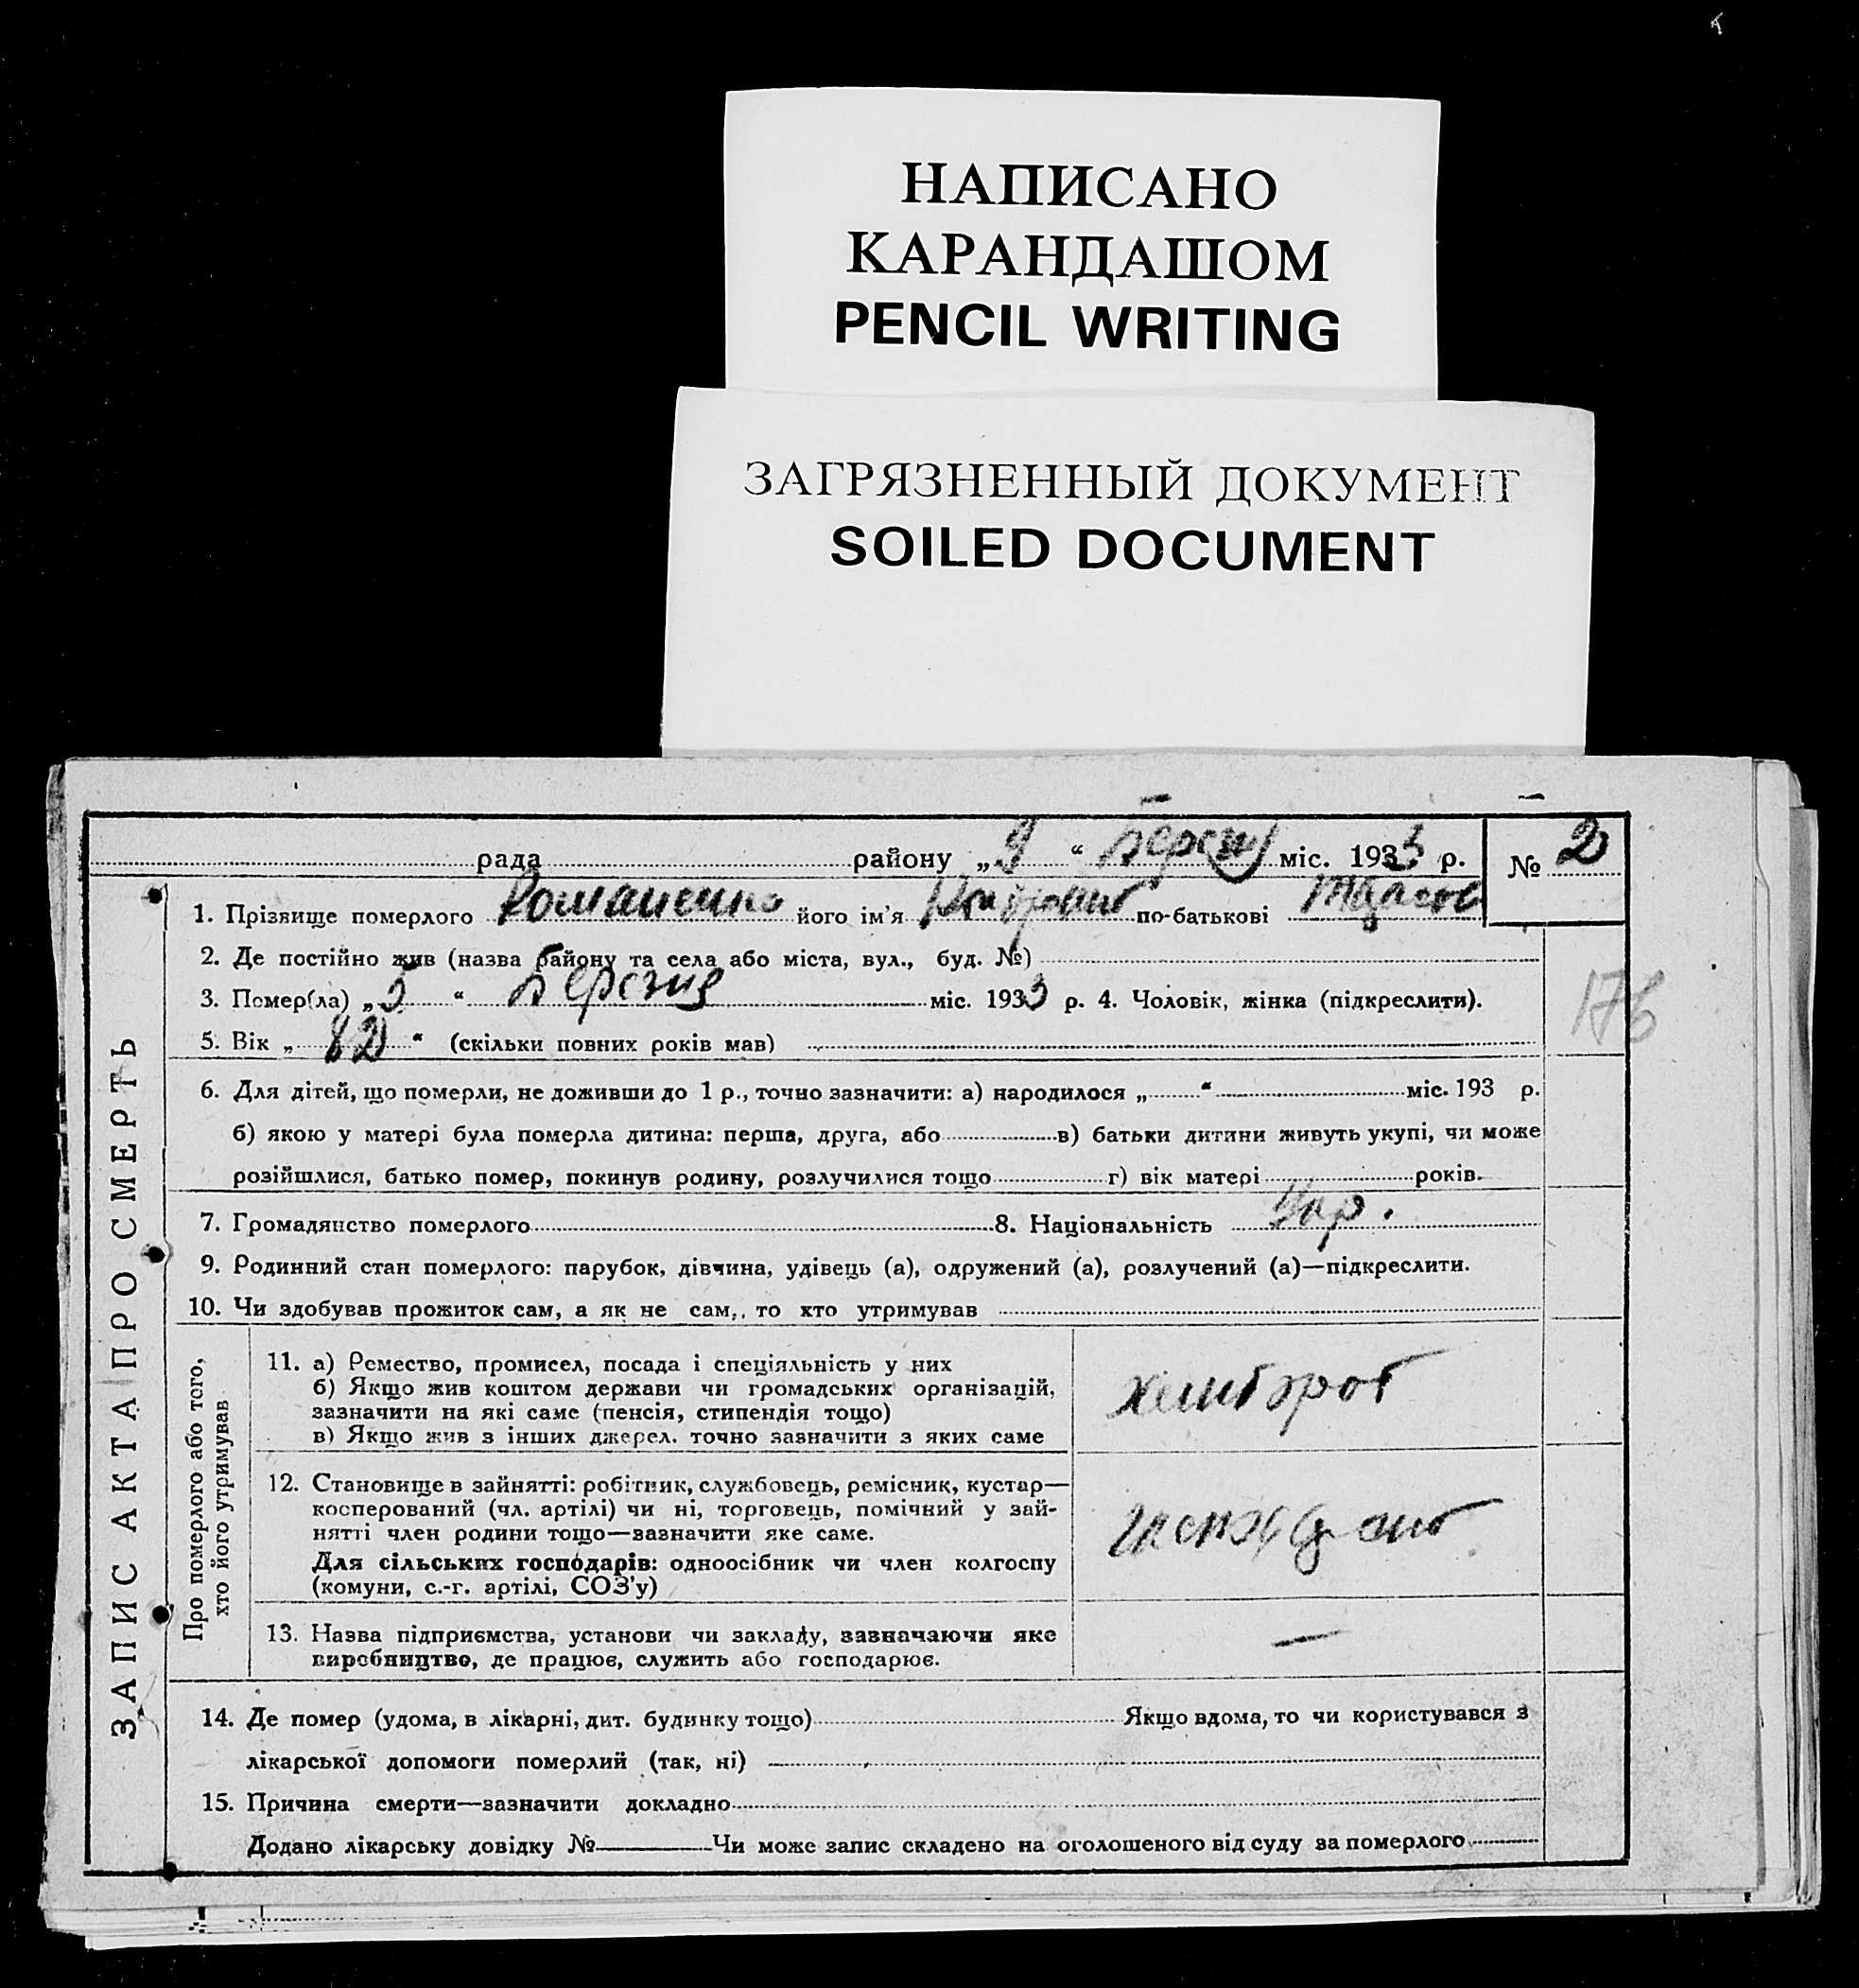 НАПИСАНО
КАРАНДАШОМ
PENCIL WRITING
ЗАГРЯЗНЕННЫЙ ДОКУМЕНТ
SOILED DOCUMENT
рада району „9“ Березня міс. 1933 р. № 2
1. Прізвище померлого Романенко його ім'я по-батькові
2. Де постійно жив (назва району та села або міста, вул., буд. №)
3. Помер(ла) „5“ Березня міс. 1933 р. 4. Чоловік, жінка (підкреслити).
176
5. Вік „82“ (скільки повних років мав)
6. Для дітей, що померли, не доживши до 1 р., точно зазначити: а) народилося „ “ міс. 193 р.
б) якою у матері була померла дитина: перша, друга, або в) батьки дитини живуть укупі, чи може
розійшлися, батько помер, покинув родину, розлучилися тощо г) вік матері років.
7. Громадянство померлого 8. Національність Укр.
9. Родинний стан померлого: парубок, дівчина, удівець (а), одружений (а), розлучений (а)—підкреслити.
10. Чи здобував прожиток сам, а як не сам, то хто утримував
ЗАПИС АКТА ПРО СМЕРТЬ
Про померлого або того,
хто його утримував
11. а) Ремество, промисел, посада і специяльність у них
б) Якщо жив коштом держави чи громадських організацій,
зазначити на які саме (пенсія, стипендія тощо)
в) Якщо жив з інших джерел. точно зазначити з яких саме
хлібороб
12. Становище в зайнятті: робітник, службовець, ремісник, кустар—
косперований (чл. артілі) чи ні, торговець, помічний у зай-
нятті член родини тощо—зазначити яке саме.
Для сільських господарів: одноосібник чи член колгоспу
(комуни, с.-г. артілі, СОЗ'у)
13. Назва підприємства, установи чи закладу, зазначаючи яке
виробництво, де працює, служить або господарює.
—
14. Де помер (удома, в лікарні, дит. будинку тощо) Якщо вдома, то чи користувався з
лікарської допомоги померлий (так, ні)
15. Причина смерти—зазначити докладно
Додано лікарську довідку № Чи може запис складено на оголошеного від суду за померлого